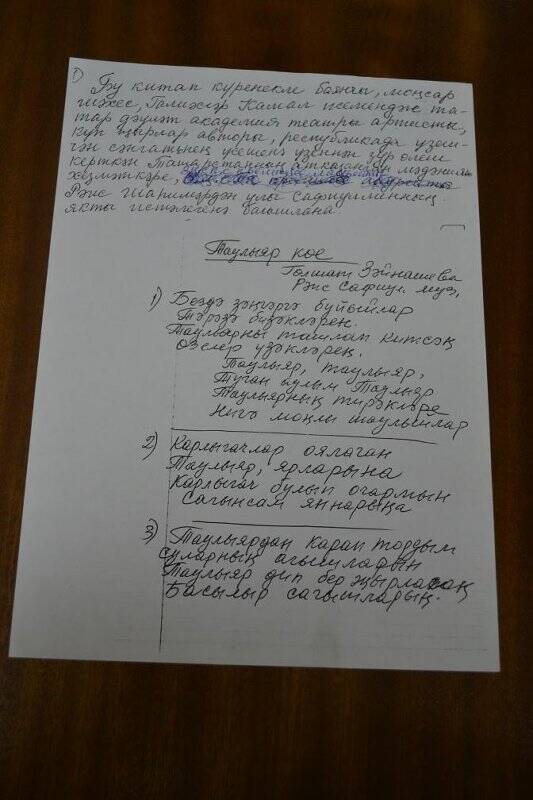 1)
Бу китап күренекле баянчы, моңсар
шәхес, Галиәсгар Камал исемендәге та-
тар дәүләт академия театры артисты,
күп җырлар авторы, республикада үзеш-
чән сәнгатьнең үсешенә үзеннән зур өлеш
керткән Татарстанның атказанган мәдәният
хезмәткәре,
Рәис Шаримәрдән улы Сафиуллинның
якты истәлегенә багышлана.
Таулыяр көе
Гөлшат Зәйнашева
Рәис Сафиул. муз,
1) Бездә зәңгәргә буйыйлар
Тәрәзә бизәкләрен.
Таулыярны ташлап китсәң
Өзелер үзәкләрең.
Таулыяр, таулыяр,
Туган авылым Таулыяр
Таулыярның тирәкләре
Нигә моңлы шаулыйлар
2) Карлыгачлар оялаган
Таулыяр, ярларына
Карлыгач булып очармын
Сагынсам яннарыңа
3) Таулыярдан карап тордым
суларның агышларын
Таулыяр дип бер җырласаң
Басылыр сагышларың.